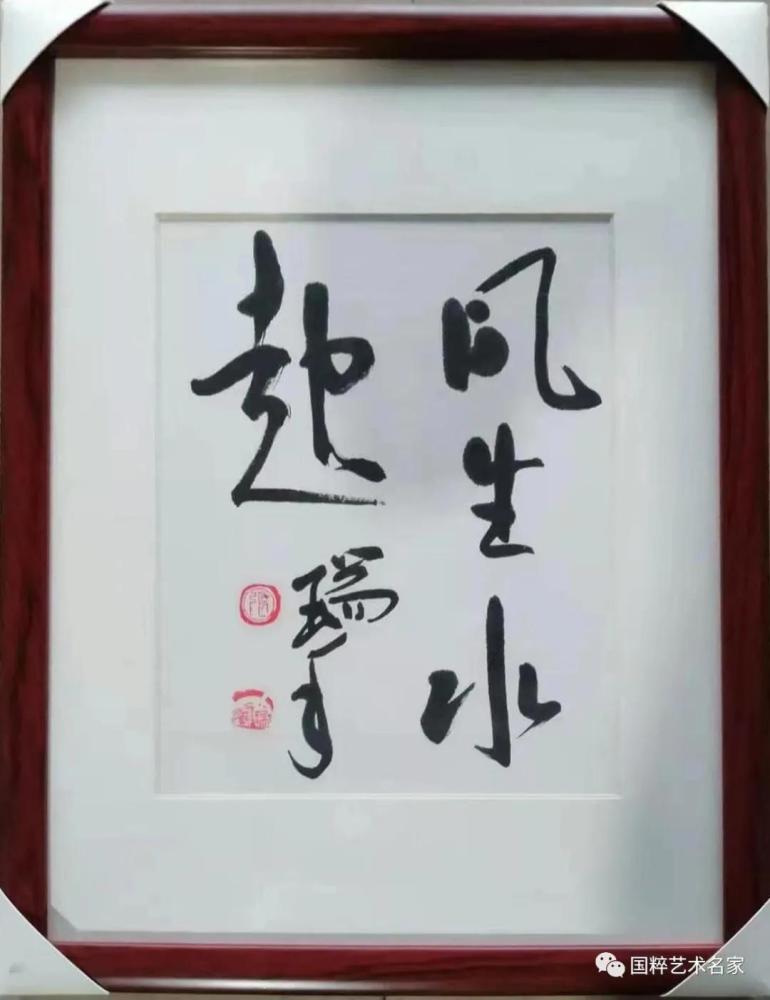 风生水
起
国粹艺术名家